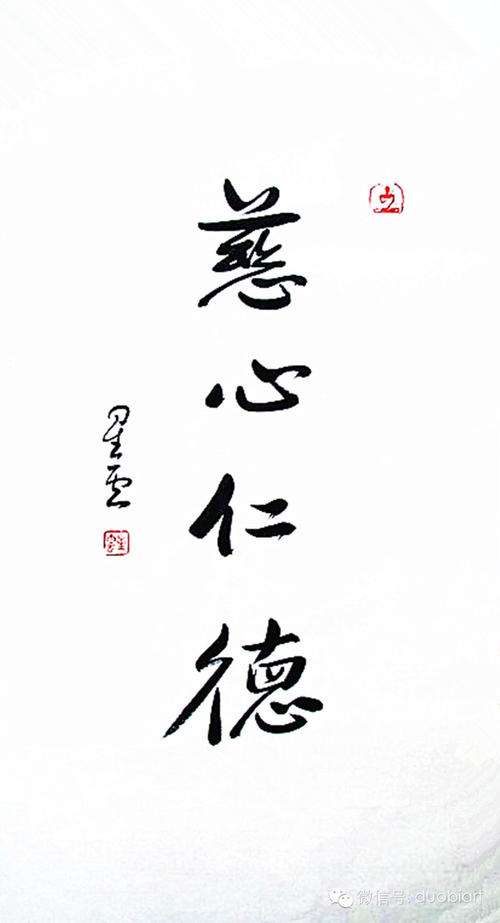 慈心仁德
星雲
微信号: duobiart